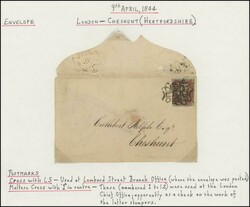 9th APRIL, 1844
ENVELOPE
LONDON — CHESHUNT (HERTFORDSHIRE)
Cuthbert Relph Esqr
Cheshunt
POSTMARKS
CROSS with LS — Used at Lombard Street Branch Office (where the envelope was posted)
Maltese Cross with 2 in centre — These (numbered 1 to 12) were used at the London
Chief Office, apparently as a check on the work of
the letter stampers.